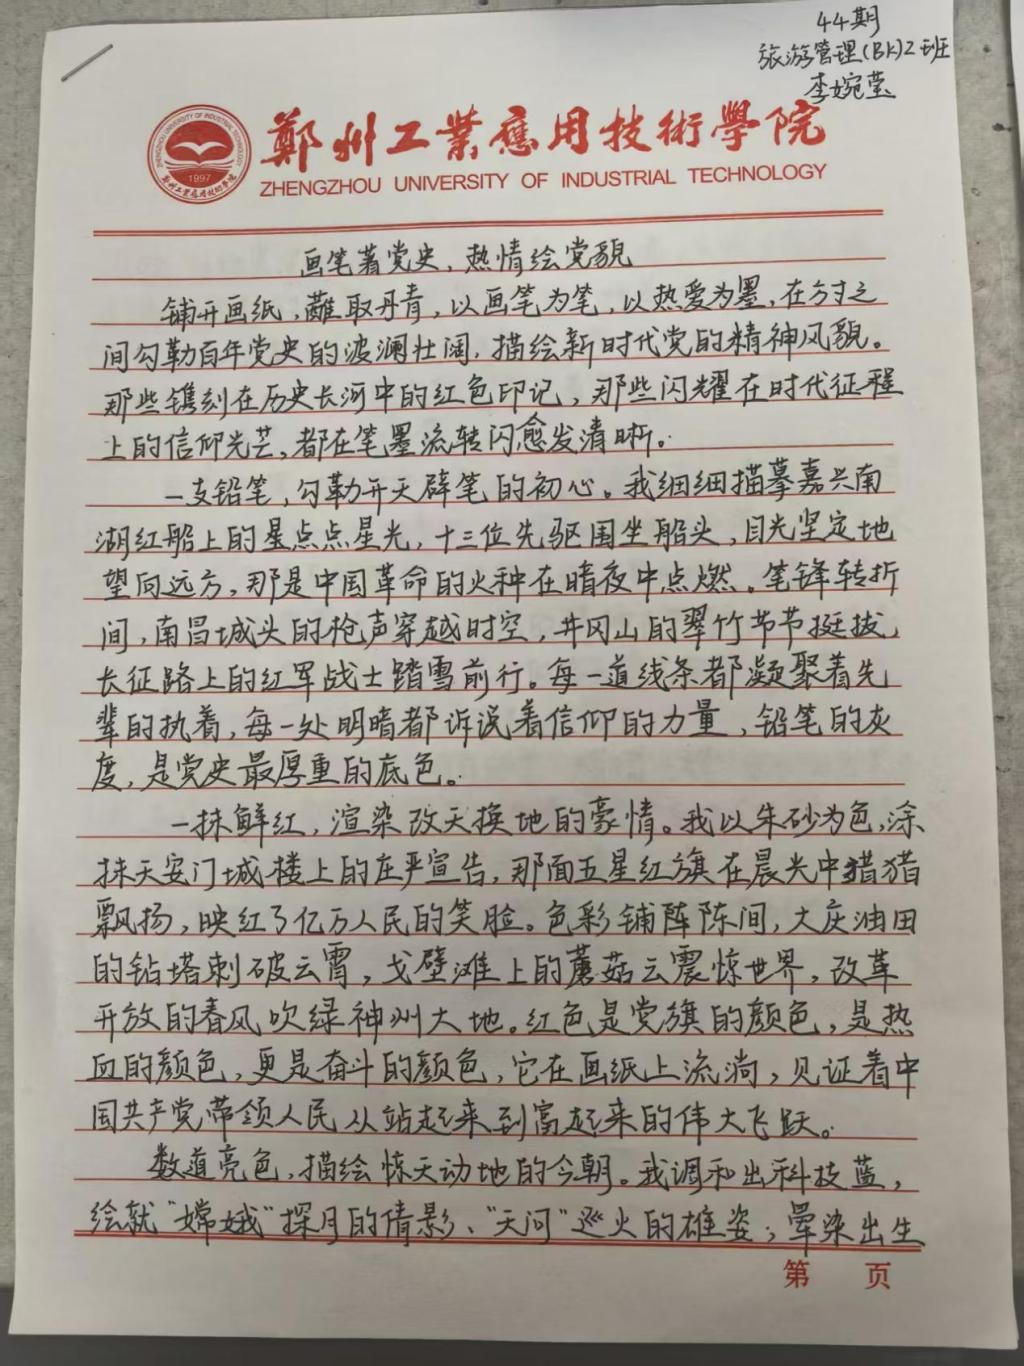 44期
旅游管理(BK)2班
李婉莹
鄭州工業應用技術學院
ZHENGZHOU UNIVERSITY OF INDUSTRIAL TECHNOLOGY
1997
画笔著党史，热情绘党貌
铺开画纸，蘸取丹青，以画笔为笔，以热爱为墨，在方寸之
间勾勒百年党史的波澜壮阔，描绘新时代党的精神风貌。
那些镌刻在历史长河中的红色印记，那些闪耀在时代征程
上的信仰光芒，都在笔墨流转闪愈发清晰。
一支铅笔，勾勒开天辟笔的初心。我细细描摹嘉兴南
湖红船上的星点点星光，十三位先驱围坐船头，目光坚定地
望向远方，那是中国革命的火种在暗夜中点燃。笔锋转折
间，南昌城头的枪声穿越时空，井冈山的翠竹节节挺拔，
长征路上的红军战士踏雪前行。每一道线条都凝聚着先
辈的执着，每一处明暗都诉说着信仰的力量，铅笔的灰
度，是党史最厚重的底色。
一抹鲜红，渲染改天换地的豪情。我以朱砂为色，涂
抹天安门城楼上的庄严宣告，那面五星红旗在晨光中猎猎
飘扬，映红了亿万人民的笑脸。色彩铺阵陈间，大庆油田
的钻塔刺破云霄，戈壁滩上的蘑菇云震惊世界，改革
开放的春风吹绿神州大地。红色是党旗的颜色，是热
血的颜色，更是奋斗的颜色，它在画纸上流淌，见证着中
国共产党带领人民从站起来到富起来的伟大飞跃。
数道亮色，描绘惊天动地的今朝。我调和出科技蓝，
绘就“嫦娥”探月的倩影、“天问”巡火的雄姿；晕染出生
第 页